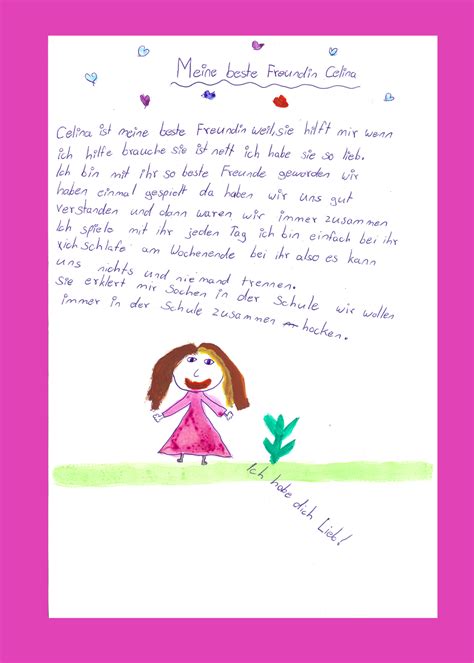 Meine beste Freundin Celina
Celina ist meine beste Freundin weil, sie hilft mir wenn
ich hilfe brauche sie ist nett ich habe sie so lieb.
Ich bin mit ihr so beste Freunde geworden wir
haben einmal gespielt da haben wir uns gut
verstanden und dann waren wir immer zusammen
Ich spiele mit ihr jeden Tag ich bin einfach bei ihr
ich schlafe am Wochenende bei ihr also es kann
uns nichts und niemand trennen.
Sie erklert mir Sachen in der Schule wir wollen
immer in der Schule zusammen hocken.
Ich habe dich Lieb!